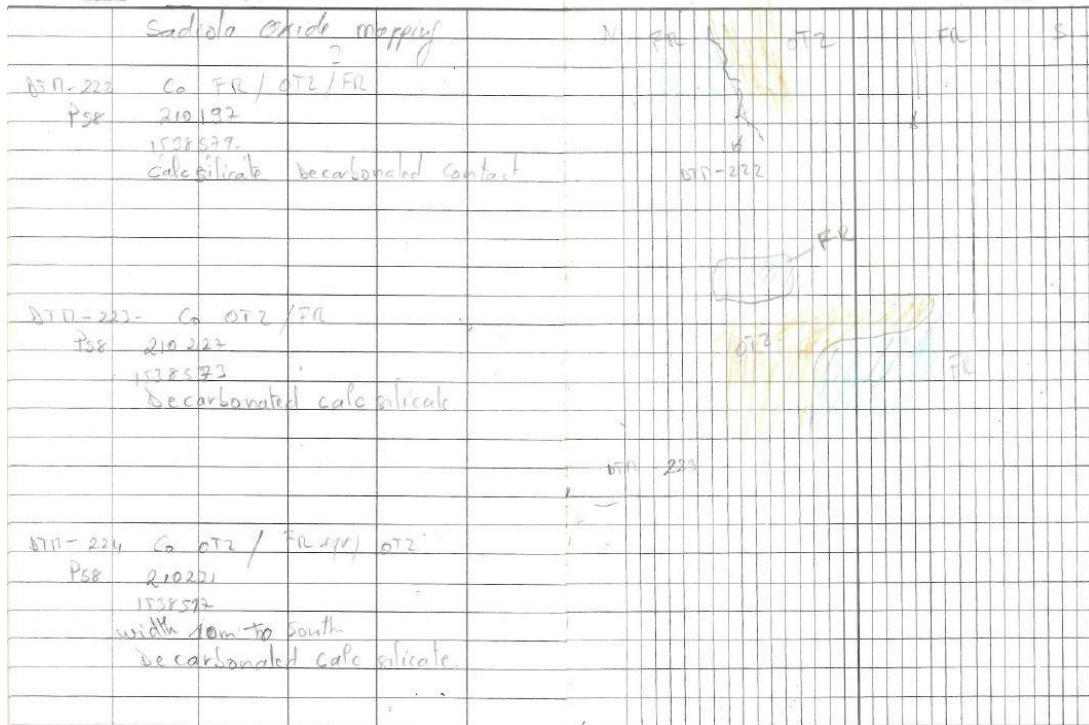 Sadiola Oxide mapping
DTM-222 Co FR / OT2 / FR
PS8 210197
1538579
Calcsilicate Decarbonated Contact
DTM-223- Co OT2 / FR
PS8 210227
1538573
Decarbonated calc silicate
DTM-224 Co OT2 / FR OT2
PS8 210221
1538597
width 10m to South
Decarbonated calc silicate
N FR OT2 FR S
DTM-222
FR
OT2
FR
DTM-223